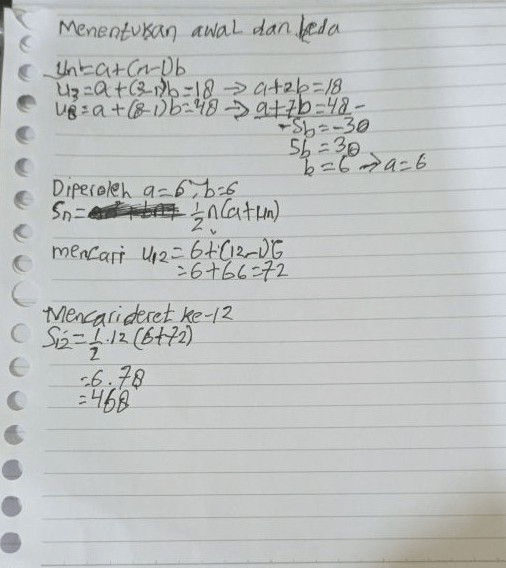 Menentukan awal dan beda
Un=a+(n-1)b
U3=a+(3-1)b=18 → a+2b=18
U8=a+(8-1)b=48 → a+7b=48 -
-5b=-30
5b=30
b=6 → a=6
Diperoleh a=6, b=6
Sn= 1/2 n(a+Un)
mencari U12=6+(12-1)6
=6+66=72
Mencari deret ke-12
S12=1/2.12(6+72)
=6.78
=468